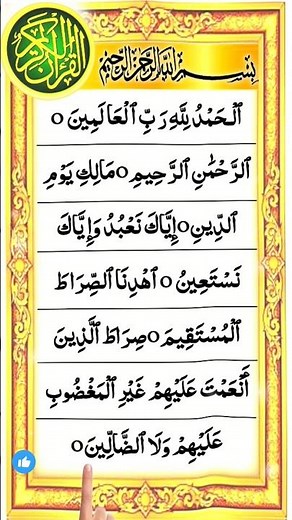 القرآن الكريم
بِسْمِ اللَّهِ الرَّحْمَٰنِ الرَّحِيمِ
اَلْحَمْدُ لِلَّهِ رَبِّ الْعَالَمِينَ ٥
الرَّحْمَٰنِ الرَّحِيمِ ٥ مَالِكِ يَوْمِ
الدِّينِ ٥ إِيَّاكَ نَعْبُدُ وَإِيَّاكَ
نَسْتَعِينُ ٥ اَهْدِنَا الصِّرَاطَ
الْمُسْتَقِيمَ ٥ صِرَاطَ الَّذِينَ
أَنْعَمْتَ عَلَيْهِمْ غَيْرِ الْمَغْضُوبِ
عَلَيْهِمْ وَلَا الضَّالِّينَ ٥